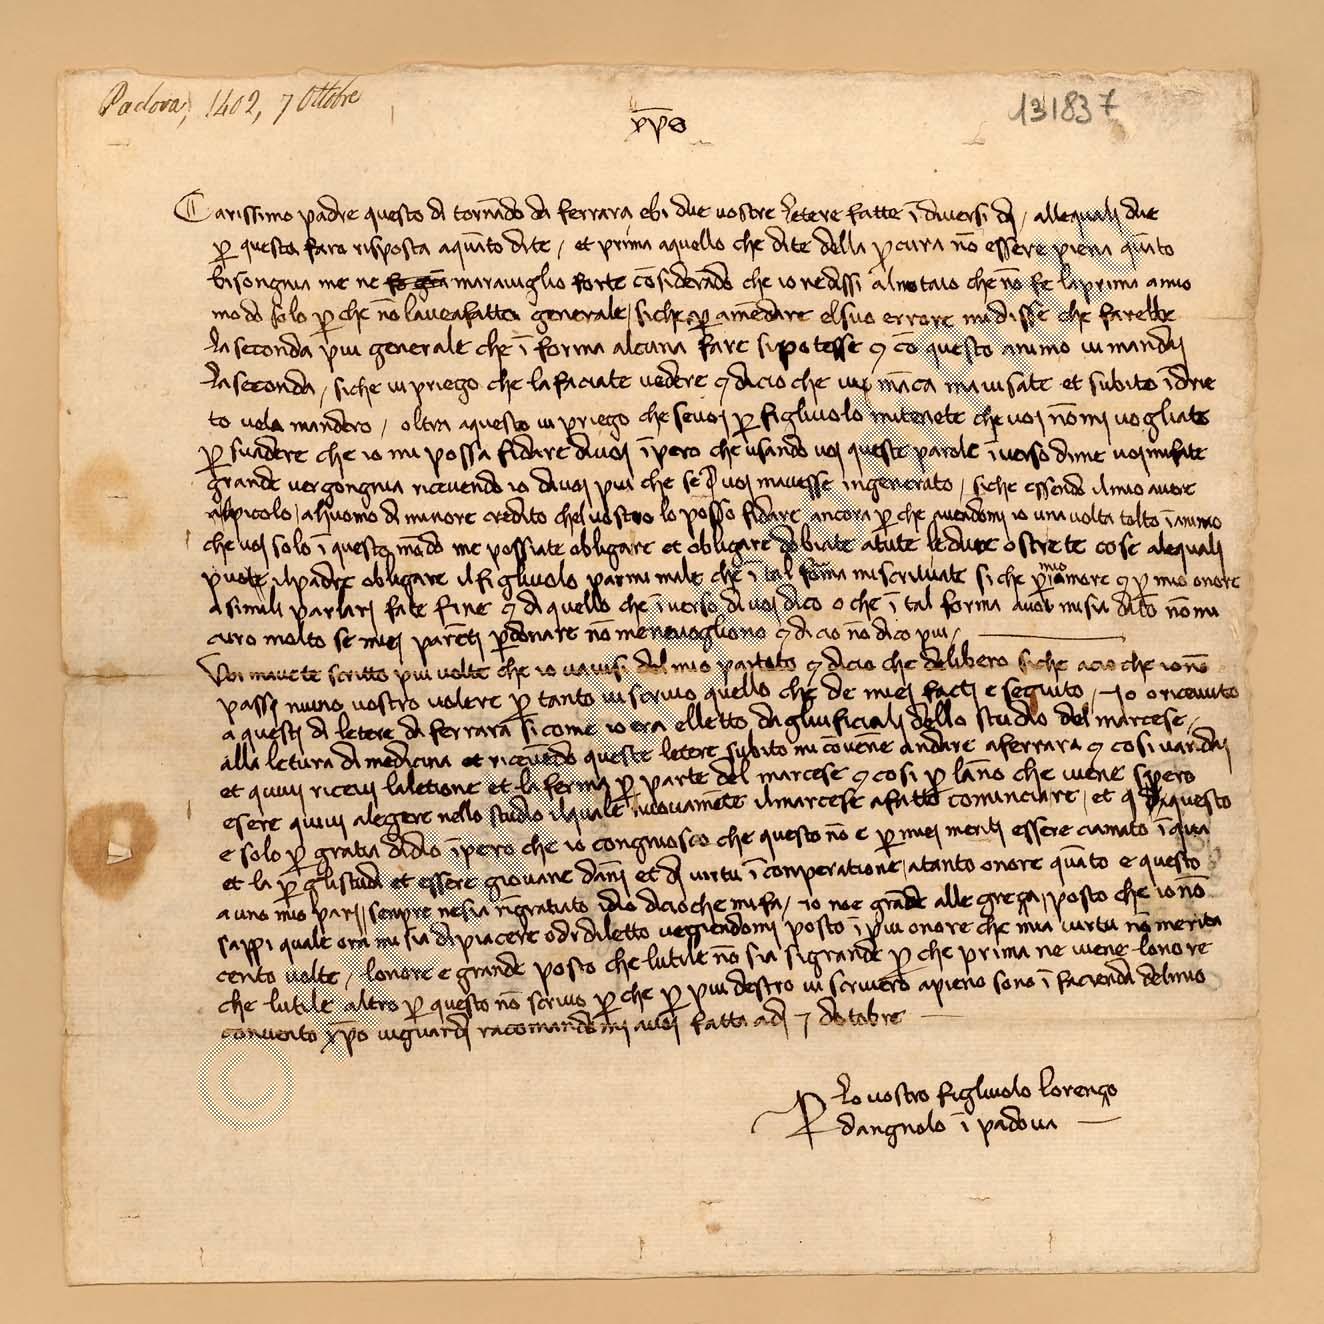 Padova, 1402, 7 Ottobre
131837
xp̄o
Carissimo padre questo dì tornādo da ferrara ebi due vostre letere fatte ī diversi dj / allequalj due
p̱ questa faro risposta aquāto dite / et prima aquello che dite della p̱cura nō essere piena quāto
bisongnia me ne maraviglio forte cōsiderādo che io nedissi alnotaio che nō fe laprima a mio
modo solo p̱ che nō lavea fatta generale / siche p̱ amēdare elsuo errore mi disse che farebbe
la seconda piu generale che ī forma alcuna fare si potesse e cō questo animo vi mandaj
la seconda / siche vi priego che la faciate vedere e dicio che vi māca mavisate et subito īdrie
to vela mandero / oltra aquesto vi priego che sevoj p̱ figliuolo mitenete che voj nōmi vogliate
p̱suadere che io mi possa fidare divoj īpero che usando voj queste parole īverso dime voj mifate
grande vergongnia ricevendo io davoj piu che se voj mavesse ingenerato / siche essendo ilmio avere
picolo / a huomo di minore credito chel vostro lo posso fidare ancora p̱ che avendomi io una volta tolto ī animo
che voj solo ī questo mōdo me possiate obligare et obligare dobiate a tute le dure ostrete cose alequalj
puote il padre obligare il figliuolo parmi male che ī tal forma mi scriviate si che p̱ mio amore e p̱ mio onore
a simili parlarj fate fine e di quello che īverso di voj dico o che ī tal forma mi sia dito nō mi
curo molto se miej parētj p̱donare nō me ne vogliono e di cio nō dico piu /
Voi mavete scritto piu volte che io vavisi del mio partito e dicio che delibero siche acio che io nō
passi niuno vostro volere p̱ tanto vi scrivo quello che de miej factj e seguito / Io o ricevuto
a questj dì letere da ferrara si come io era elletto dagliuficialj dello studio del marcese /
alla letura di medicina et ricevēdo queste letere subito mi cōvēne andare a ferrara e cosi vandaj
et quivi ricevi laletione et la ferma p̱ parte del marcese e cosi p̱ lāno che viene spero
esere quivi alegere nello studio ilquale nuovamēte ilmarcese a fatto cominciare / et questo
e solo p̱ gratia didio īpero che io congniosco che questo nō e p̱ miej meritj essere ciamato ī qua
et la p̱ gli studi et essere giovane dānj et di virtu ī comperatione / atanto onore quāto e questo
a uno mio parj / senpre ne sia rīgratiato idio dicio che mi fa / io noe grāde allegreça / posto che io nō
sappi quale ora mi sia di piacere o di diletto vegiendomi posto ī piu onore che mia virtu nō merita
cento volte / lonore e grande posto che lutile nō sia si grande p̱ che prima ne viene lonore
che lutile altro p̱ questo nō scrivo p̱ che p̱ piu destro vi scrivero a pieno sono ī facienda delmio
convento xp̄o viguardj racomandōmj avoj fatta adj 7 dotobre
P̱ lo vostro figliuolo lorenço
dangnolo ī padova
©